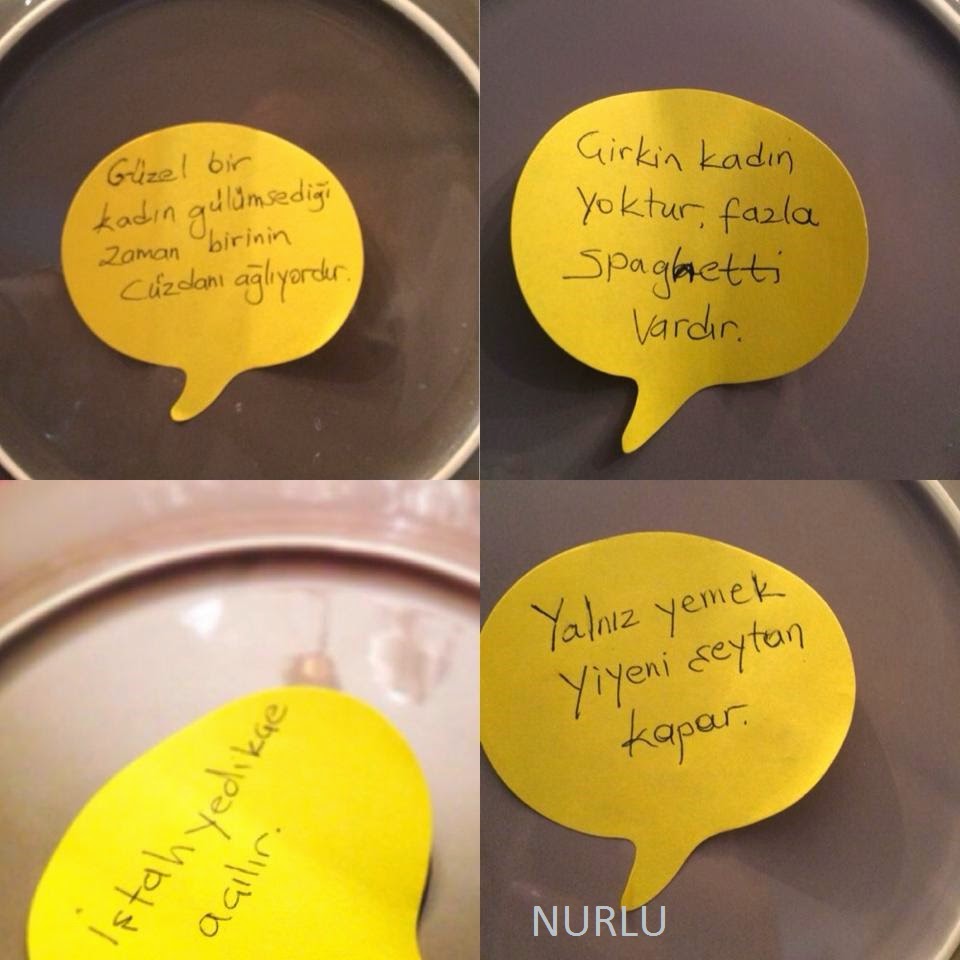 Güzel bir
kadın gülümsediği
zaman birinin
cüzdanı ağlıyordur.
Çirkin kadın
yoktur, fazla
spaghetti
vardır.
İştah yedikçe
açılır.
Yalnız yemek
yiyeni şeytan
kapar.
NURLU